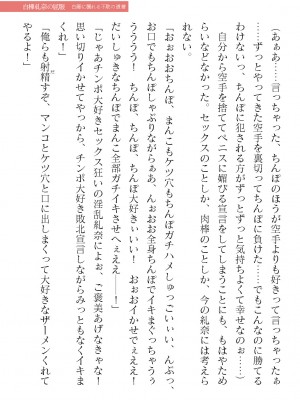 (あぁぁ……言っちゃった、ちんぽのほうが空手よりも好きって言っちゃったぁ
……ずっとやってきた空手を裏切ってちんぽに負けた……でもこんなのに勝てる
わけないっ、ちんぽに犯される方がずっとずっと気持ちよくて幸せなのぉ……)
自分から空手を捨ててペニスに媚びる宣言をしてしまうことにも、もはやため
らいなどなかった。セックスのことしか、肉棒のことしか、今の礼奈には考えら
れない。
「おぉおおちんぽ、まんこもケツ穴もちんぽガチハメしゅっごいぃい、んぶっ、
お口でもちんぽしゃぶりながらぁあ、んぉおお全身ちんぽでイキまくっちゃうぅ
うううう!　ちんぽ、ちんぽ、ちんぽ大好きぃいい!　おぉおイかせでぇえっ、
だいしゅきなちんぽでまんこ全部ガチイキさせへぇええ──!」
「じゃあチンポ大好きセックス狂いの淫乱礼奈によぉ、ご褒美あげなきゃな!
思い切りイかせてやっから、チンポ大好き敗北宣言しながらみっともなくイキま
くれ!」
「俺らも射精すぞ、マンコとケツ穴と口に出しまくって大好きなザーメンくれて
やるよ!」